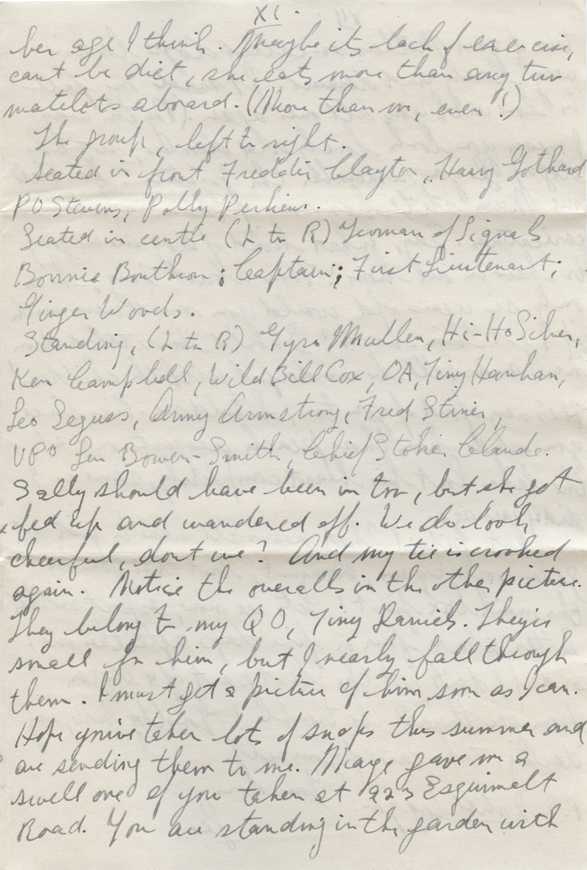 XI.
her age I think. Maybe its lack of exercise,
cant be diet, she eats more than any two
matelots aboard. (More than me, even!)
The group, left to right.
Seated in front Freddie Clayton, Harry Gothard
PO Stevens, Polly Perkins.
Seated in centre (L to R) Yeoman of Signals
Bonnie Bonthron; Captain; First Lieutenant;
Ginger Woods.
Standing, (L to R) Gyro Mullen, Hi-Ho Silver,
Ken Campbell, Wild Bill Cox, OA, Tiny Hanhan,
Leo Seguss, Army Armstrong, Fred Stiner,
Len Bowen-Smith, Chief Stoker Claude.
Sally should have been in too, but she got
fed up and wandered off. We do look
cheerful, dont we? And my tie is crooked
again. Notice the overalls in the other picture.
They belong to my QO, Tiny Daniels. Theyre
small for him, but I nearly fall through
them. I must get a picture of him soon as I can.
Hope you've taken lots of snaps this summer and
are sending them to me. Marge gave me a
swell one of you taken at 923 Esquimalt
Road. You are standing in the garden with